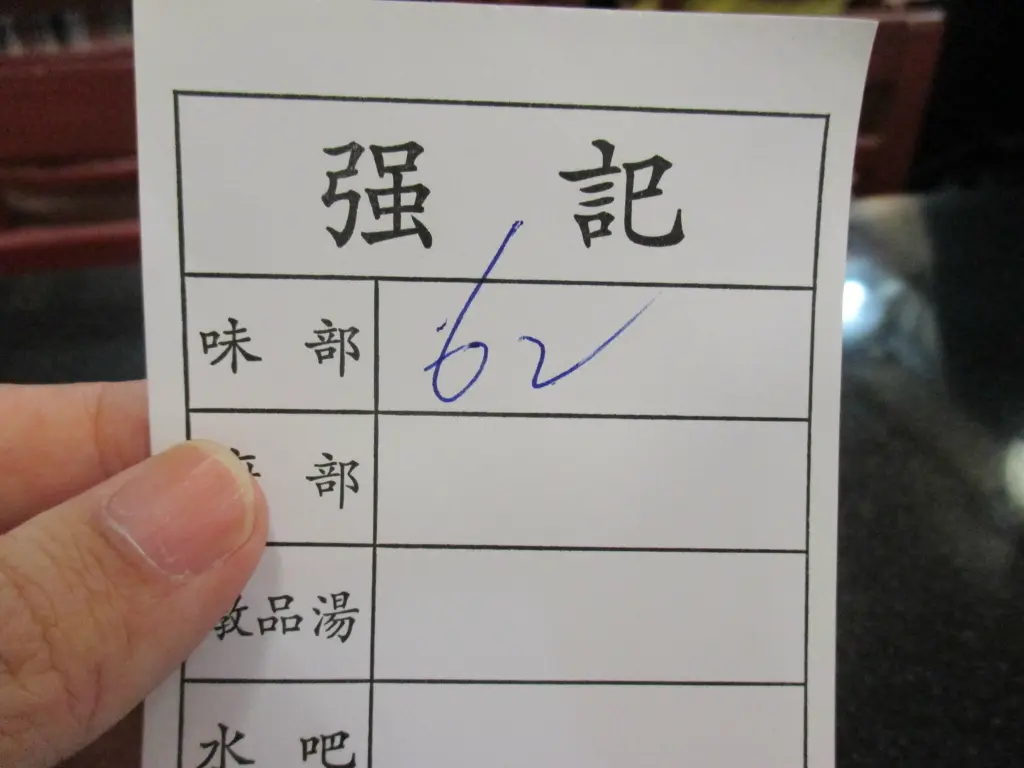 强記
味部 62
部
品湯
水吧